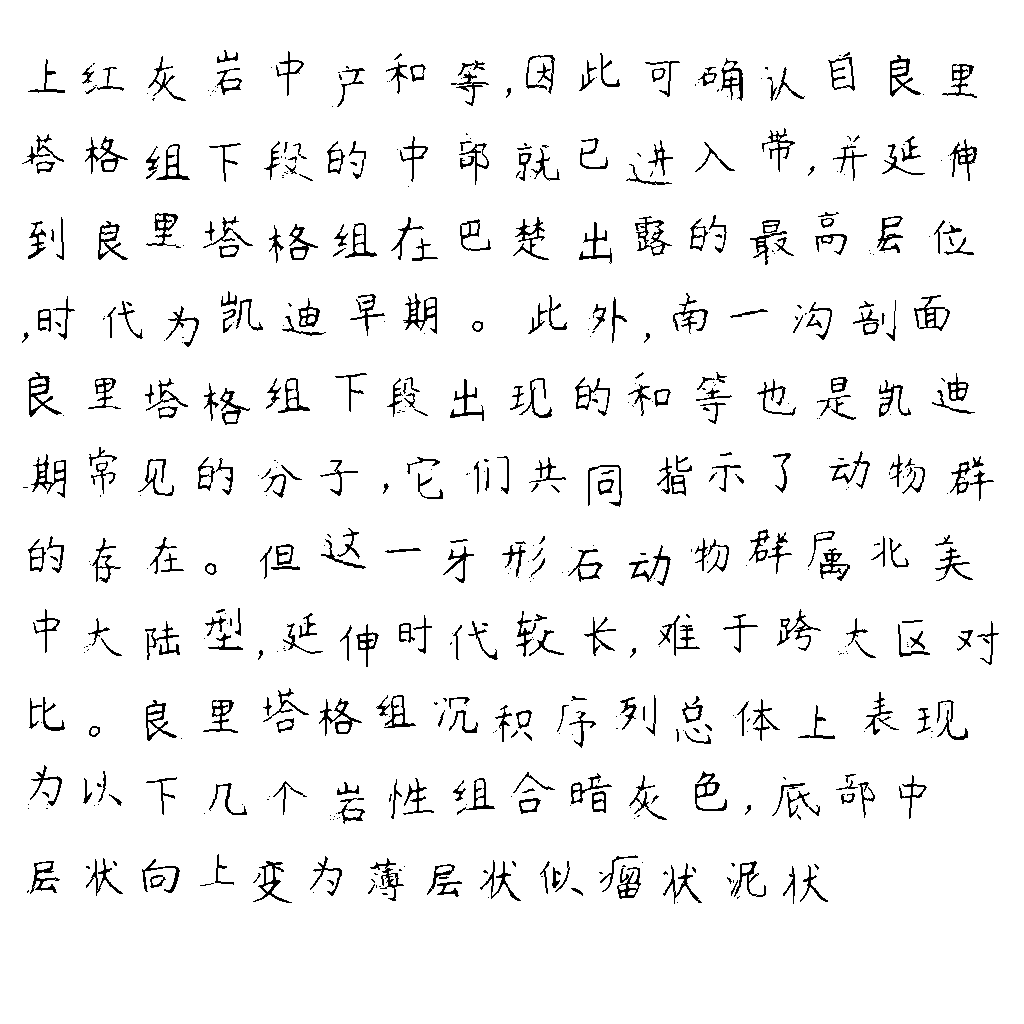 上红灰岩中产和等,因此可确认自良里
塔格组下段的中部就已进入带,并延伸
到良里塔格组在巴楚出露的最高层位
,时代为凯迪早期。此外,南一沟剖面
良里塔格组下段出现的和等也是凯迪
期常见的分子,它们共同指示了动物群
的存在。但这一牙形石动物群属北美
中大陆型,延伸时代较长,难于跨大区对
比。良里塔格组沉积序列总体上表现
为以下几个岩性组合暗灰色,底部中
层状向上变为薄层状似瘤状泥状